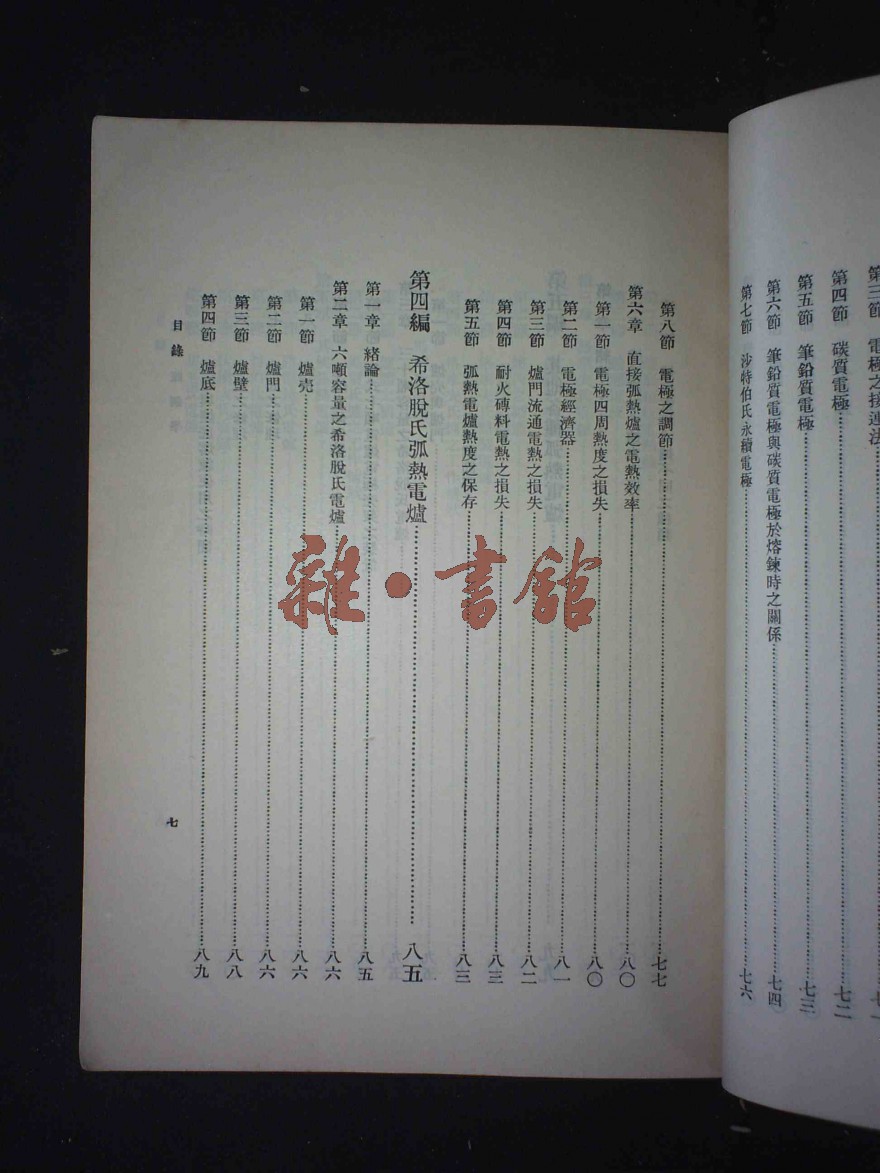 第三節　電極之接連法……七一
第四節　碳質電極……七二
第五節　筆鉛質電極……七三
第六節　筆鉛質電極與碳質電極於熔鍊時之關係……七四
第七節　沙特伯氏永續電極……七六
第八節　電極之調節……七七
第六章　直接弧熱爐之電熱效率……八〇
第一節　電極四周熱度之損失……八〇
第二節　電極經濟器……八一
第三節　爐門流通電熱之損失……八二
第四節　耐火磚料電熱之損失……八三
第五節　弧熱電爐熱度之保存……八三
第四編　希洛脫氏弧熱電爐……八五
第一章　緒論……八五
第二章　六噸容量之希洛脫氏電爐……八六
第一節　爐壳……八六
第二節　爐門……八六
第三節　爐壁……八八
第四節　爐底……八九
目錄
七
雜・書館